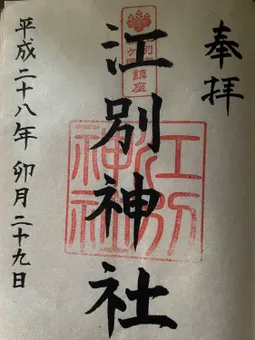 奉拝
江別神社
江別神社
平成二十八年 卯月二十九日